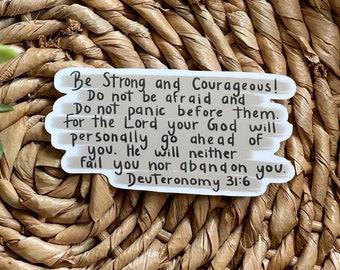 Be Strong and Courageous!
Do not be afraid and
Do not panic before them.
For the Lord your God will
personally go ahead of
you. He will neither
fail you nor abandon you.
Deuteronomy 31:6